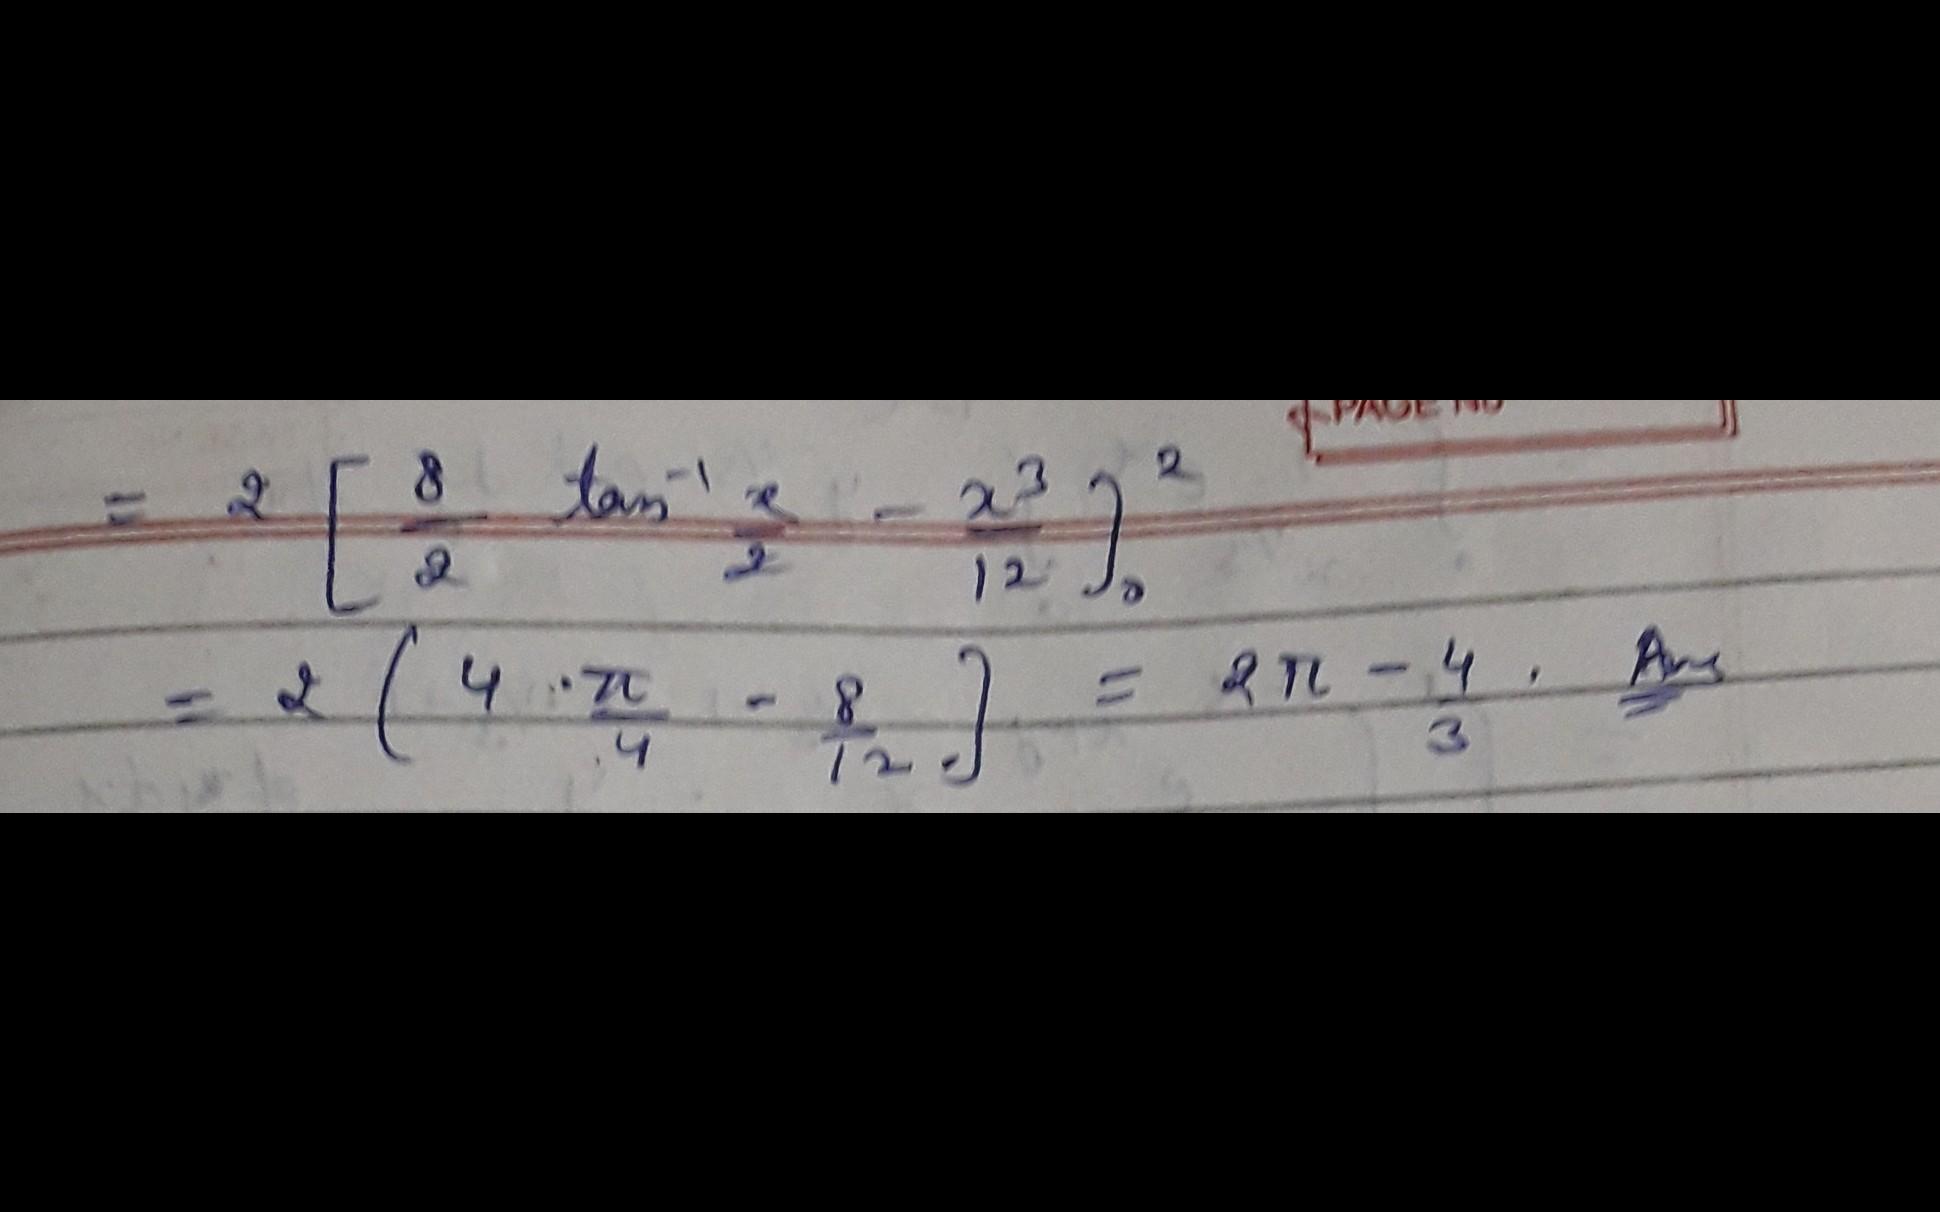 PAGE NO
= 2 [ 8/2 tan⁻¹ x/2 − x³/12 ]₀²
= 2 ( 4 · π/4 − 8/12 . ] = 2π − 4/3 . Ans